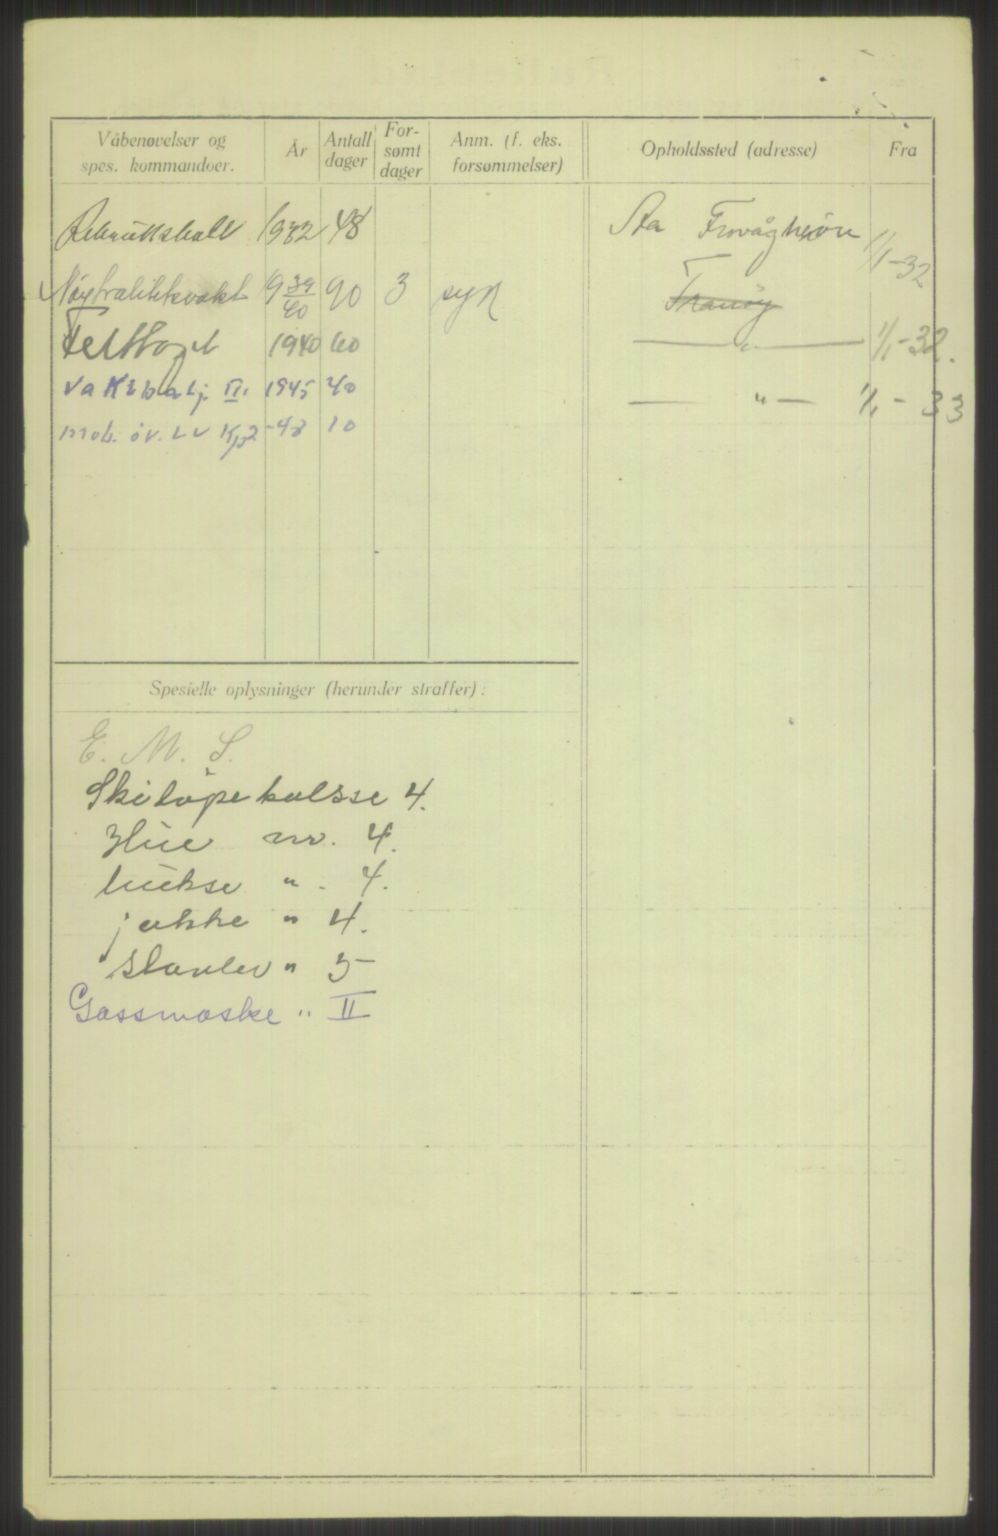 Våbenøvelser og spes. kommandoer. År Antall dager For-sømt dager Anm. (f. eks. forsømmelser) Opholdssted (adresse) Fra
Rekruttskole 1932 48 Aa Frovågheiøn 1/1-32
Nøytralitetsvakt 1939/40 90 3 syk Tranøy
Felttoget 1940 60 — " — 1/1-32.
Vaktbatj. III. 1945 40 — " — 1/1-33
mob. øv. LV Kp2 -48 10
Spesielle oplysninger (herunder straffer):
E. M. S.
Skiløpeklasse 4.
Hue nr. 4.
bukse " . 4.
jakke " 4.
støvler " 5
Gassmaske " II